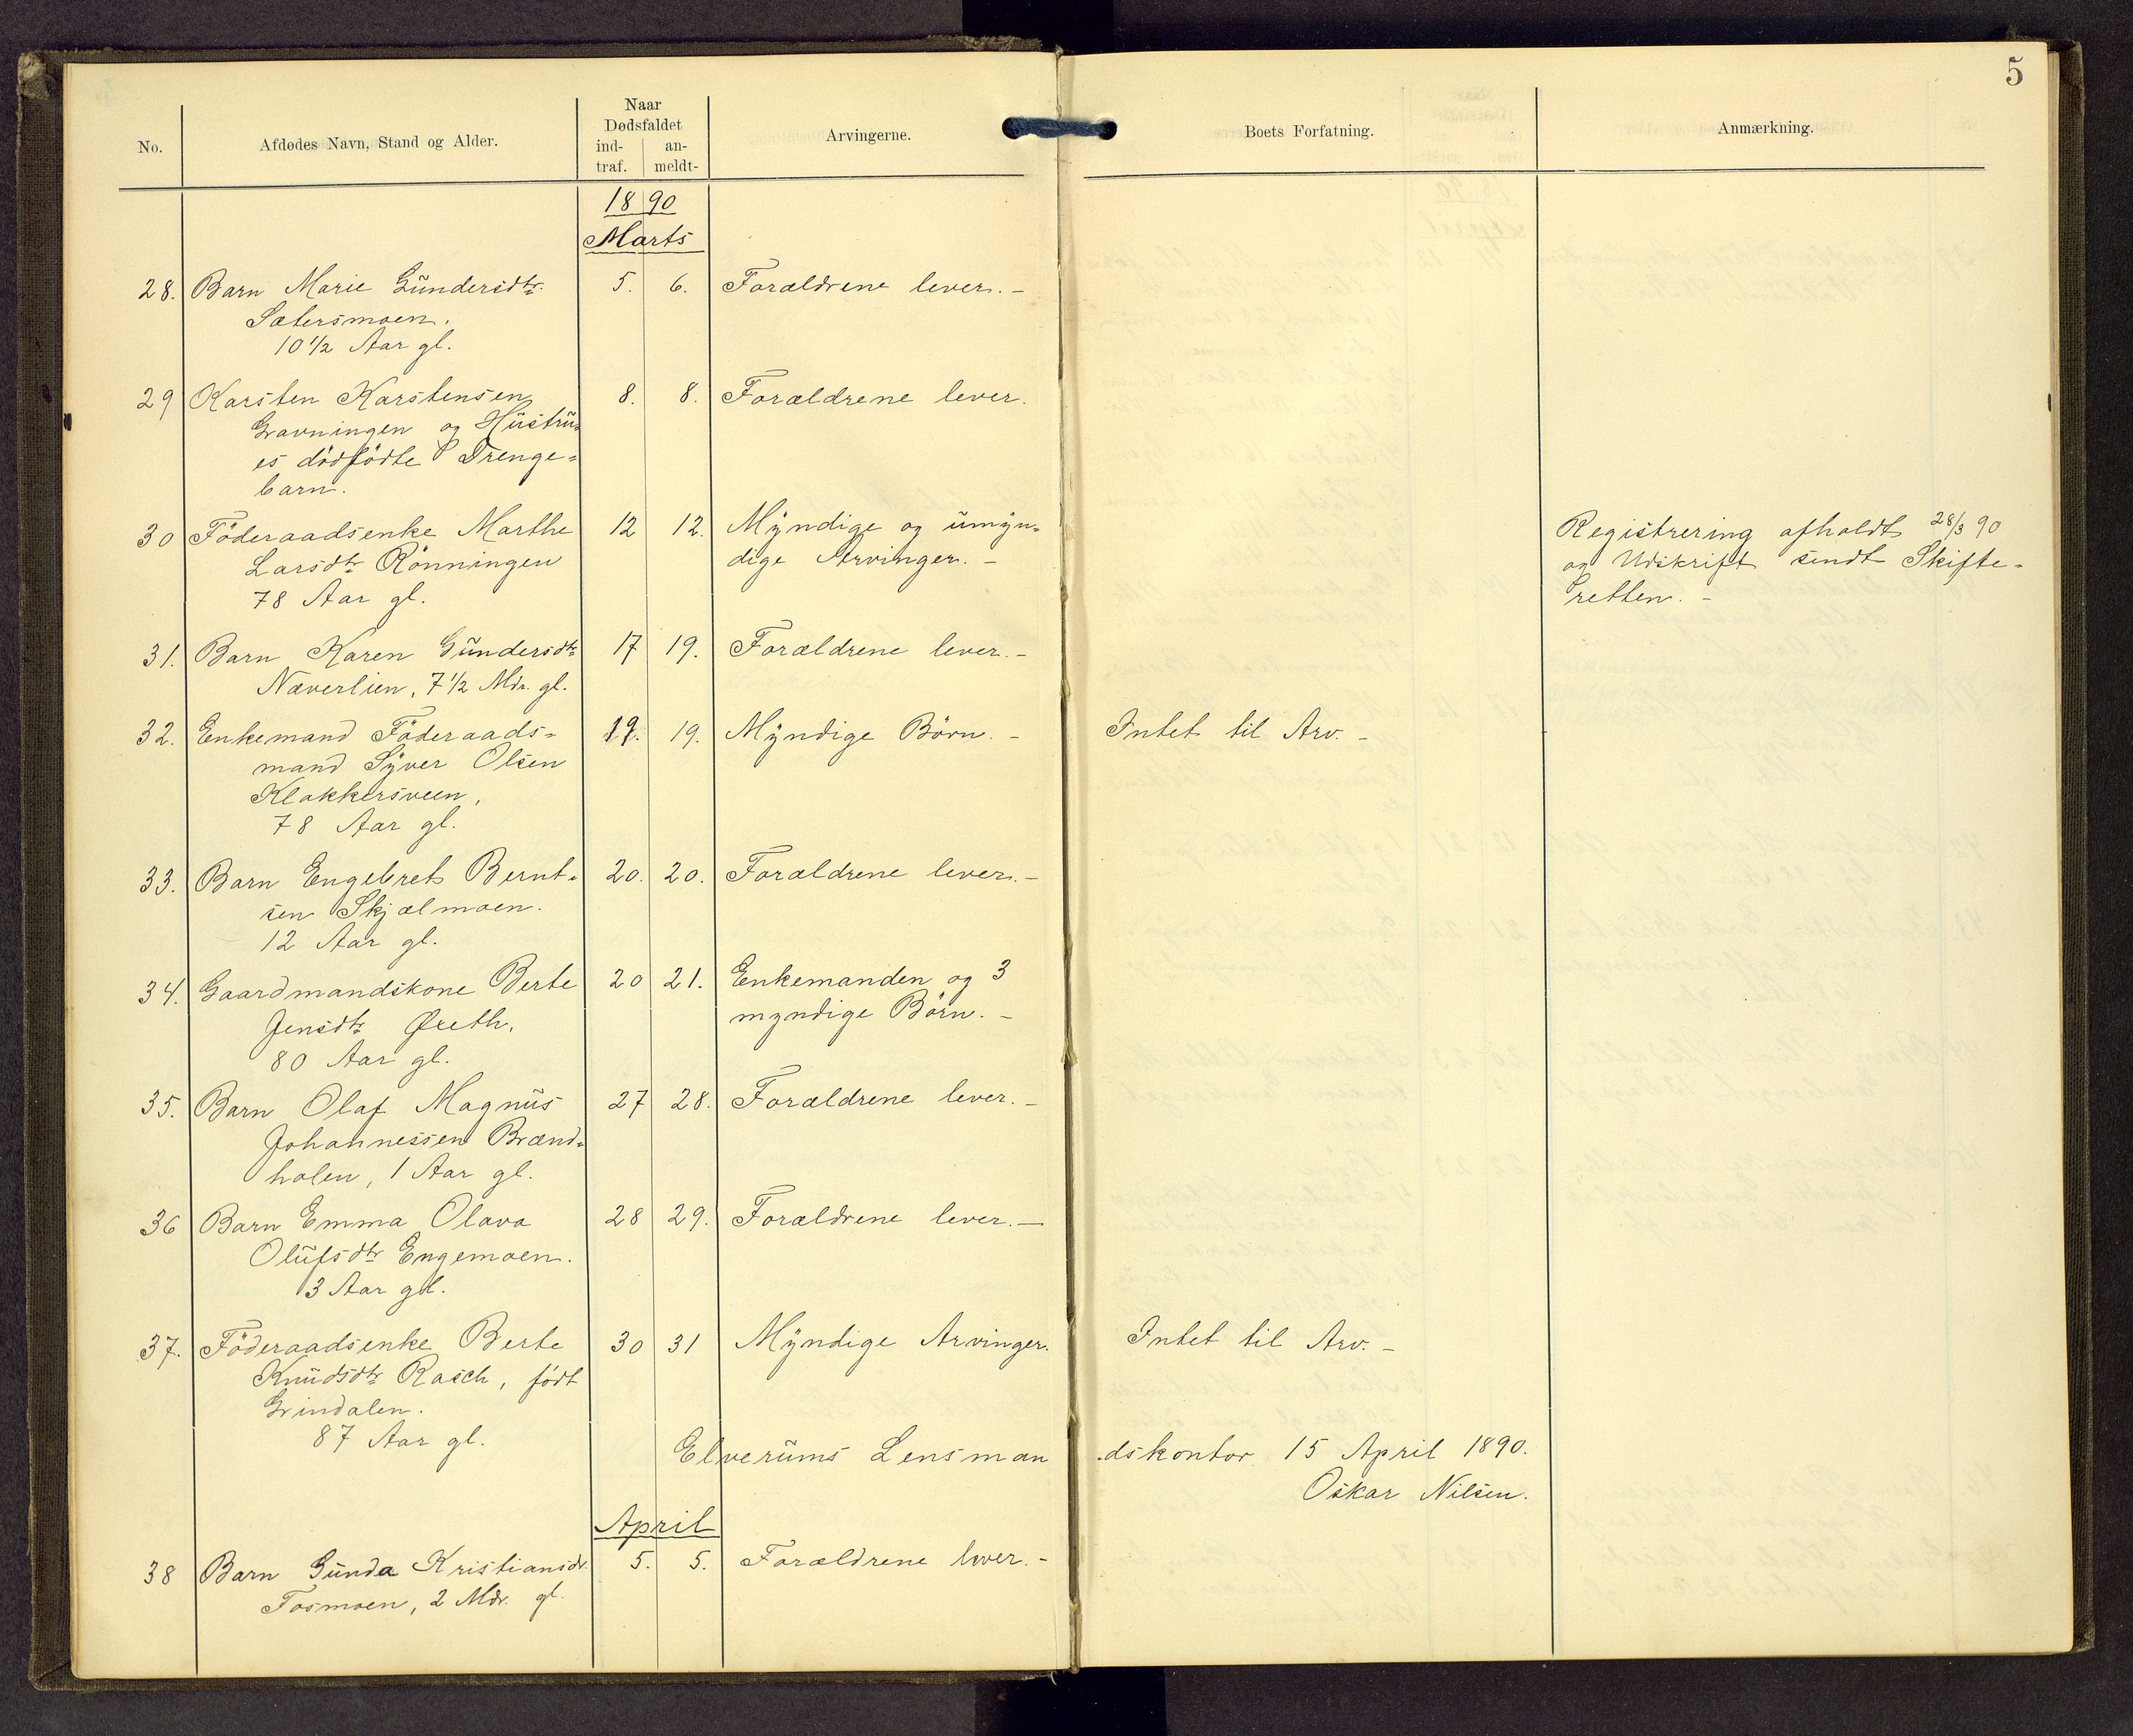 5
No.
Afdødes Navn, Stand og Alder.
Naar
Dødsfaldet
ind-
traf.
an-
meldt-
Arvingerne.
Boets Forfatning.
Anmærkning.
1890
Marts
28. Barn Marie Gundersdtr. 5. 6. Forældrene lever. -
Sætersmoen.
10 1/2 Aar gl.
29 Karsten Karstensen 8. 8. Forældrene lever.
Gravningen og Hustru=
es dödfödte Drenge=
barn.
30 Föderaadsenke Marthe 12 12. Myndige og umyn= Registrering afholdt 28/3 90
Larsdtr Rönningen dige Arvinger. - og Udskrift sendt Skifte-
78 Aar gl. retten. -
31. Barn Karen Gundersdtr 17 19. Forældrene lever. -
Næverlien, 7 1/2 Mdr. gl.
32. Enkemand Föderaads= 19. 19. Myndige Börn. - Intet til Arv. -
mand Syver Olsen
Klokkersveen,
78 Aar gl.
33. Barn Engebret Bernt= 20. 20. Forældrene lever. -
sen Skjælmoen.
12 Aar gl.
34. Gaardmandskone Berte 20 21. Enkemanden og 3
Jensdtr Øreth, myndige Börn. -
80 Aar gl.
35. Barn Olaf Magnus 27 28. Forældrene lever. -
Johannessen Brænd=
holen, 1 Aar gl.
36 Barn Emma Olava 28 29. Forældrene lever. -
Olufsdtr Engemoen.
3 Aar gl.
37. Föderaadsenke Berte 30 31 Myndige Arvinger. Intet til Arv. -
Knudsdtr Rasch, födt
Grindalen.
87 Aar gl.
Elverums Lensmandskontor 15 April 1890.
Oskar Nilsen.
April
38 Barn Gunda Kristiansdr. 5. 5. Forældrene lever. -
Tosmoen, 2 Mdr. gl.